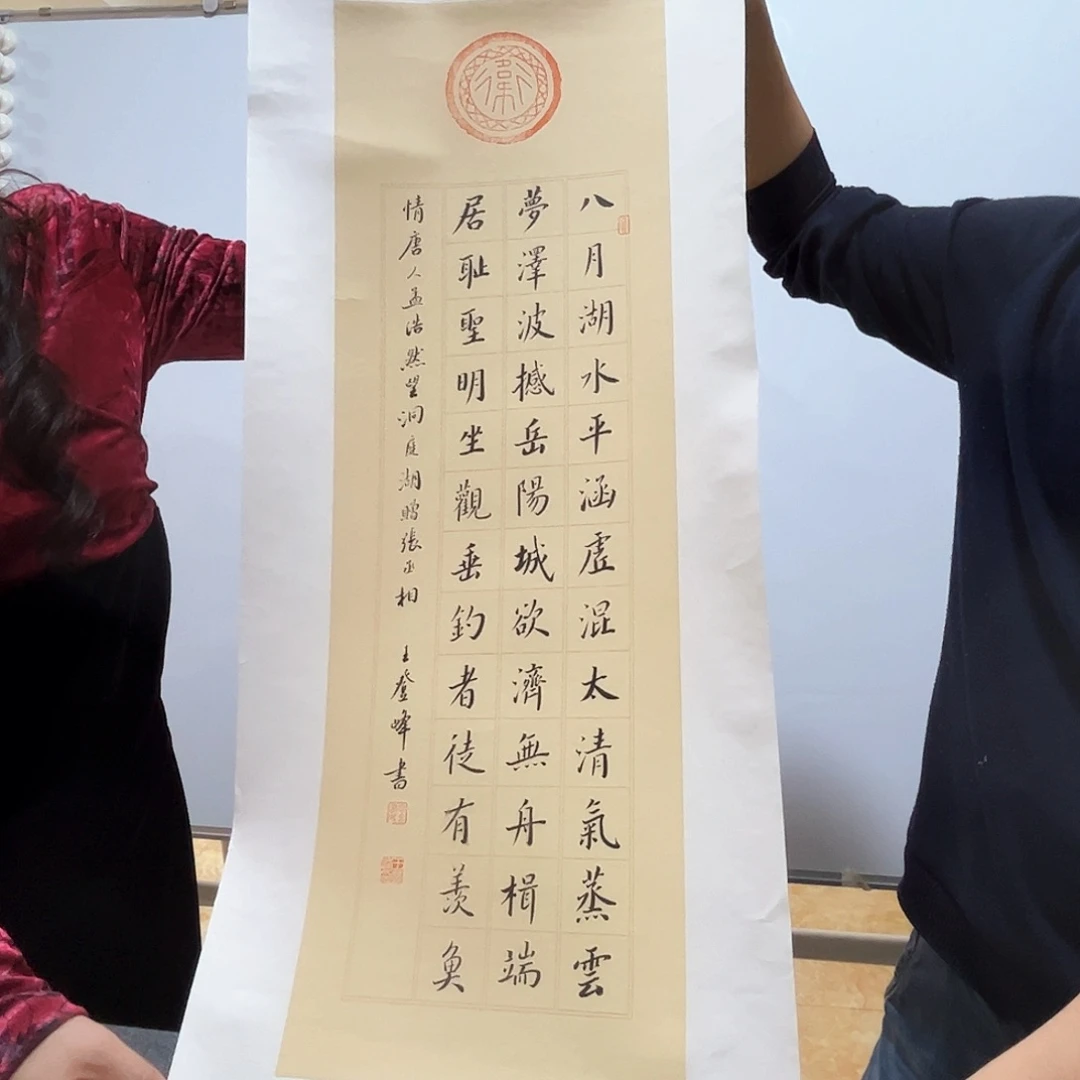 八月湖水平涵虚混太清氣蒸雲
夢澤波撼岳陽城欲濟無舟楫端
居耻聖明坐觀垂釣者徒有羨魚
情唐人孟浩然望洞庭湖贈張丞相 王登峰書